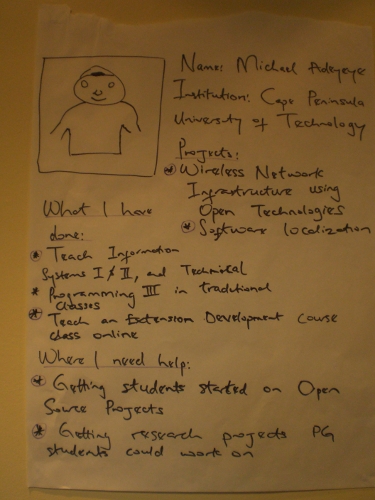 Name: Michael Adeyeye
Institution: Cape Peninsula
University of Technology
Projects:
* Wireless Network
Infrastructure using
Open Technologies
* Software localization
What I have
done:
* Teach Information
Systems I & II, and Technical
* Programming III in traditional
classes
* Teach an Extension Development course
class online
Where I need help:
* Getting students started on Open
Source Projects
* Getting research projects PG
students could work on